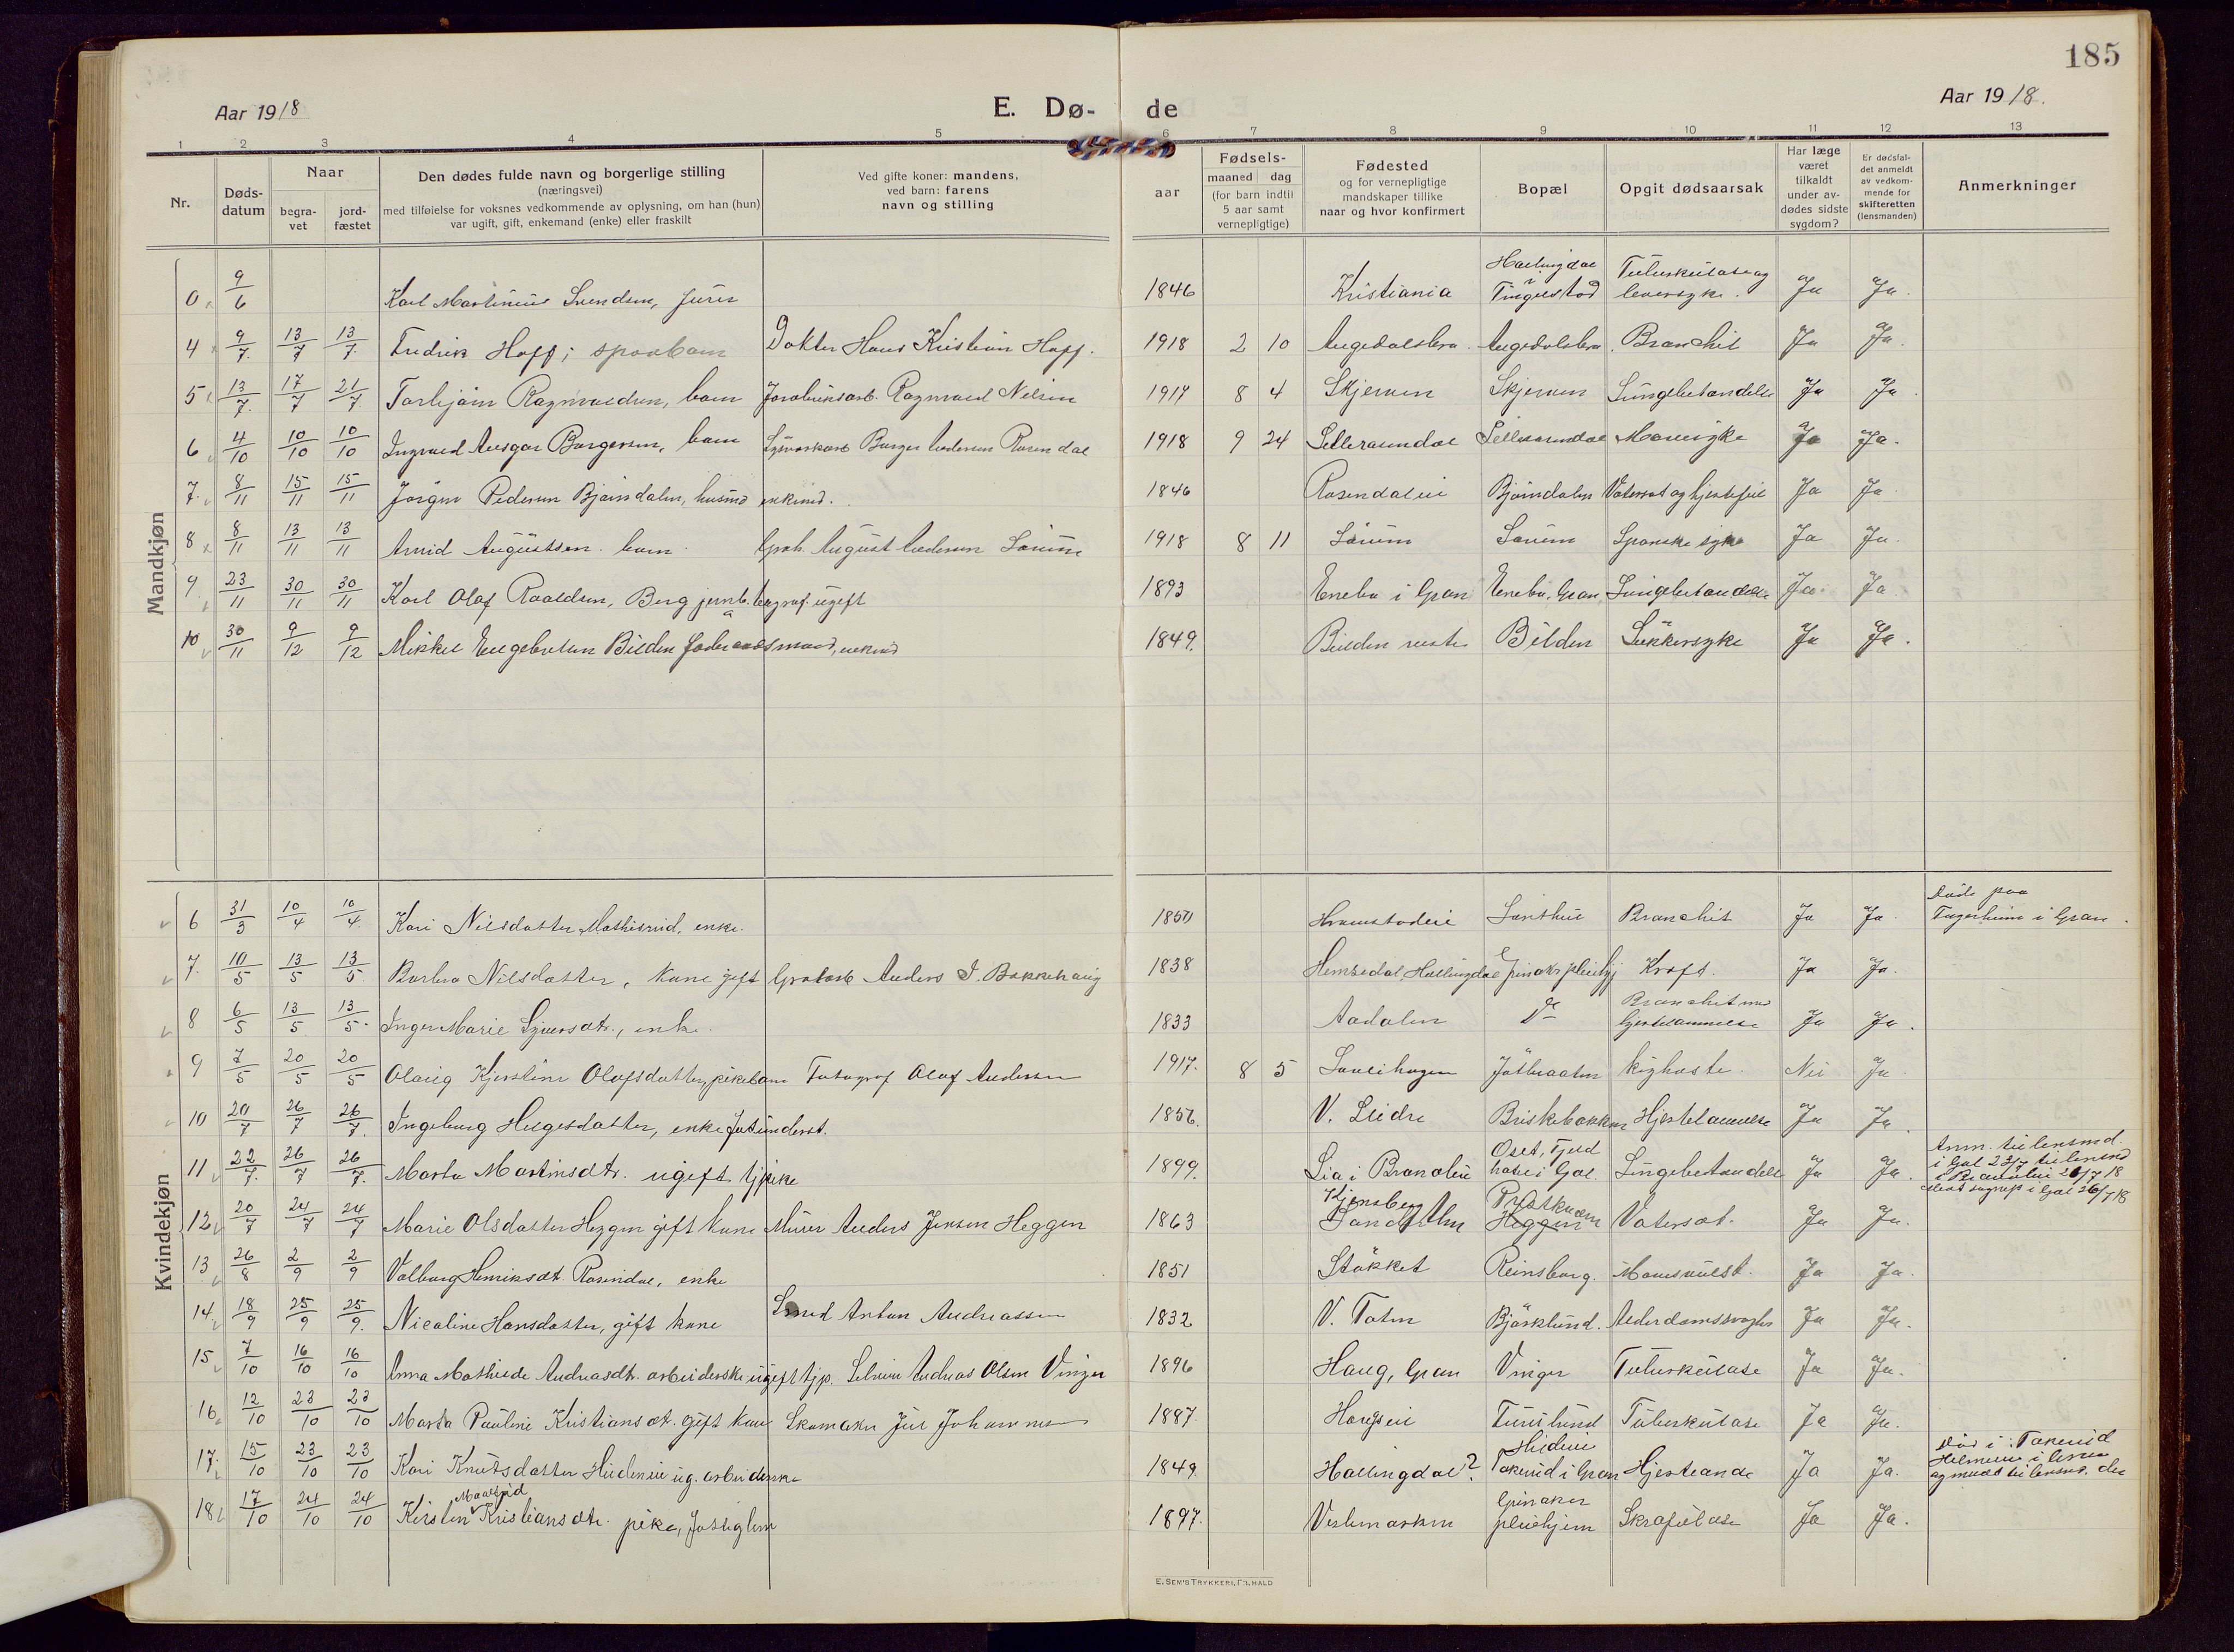 185
Aar 1918
E. Dø-
de
Aar 1918.
1 2 3 4 5 6 7 8 9 10 11 12 13
Nr.
Døds-
datum
Naar
begra-
vet
jord-
fæstet
Den dødes fulde navn og borgerlige stilling
(næringsvei)
med tilføielse for voksnes vedkommende av oplysning, om han (hun)
var ugift, gift, enkemand (enke) eller fraskilt
Ved gifte koner: mandens,
ved barn: farens
navn og stilling
aar
Fødsels-
maaned dag
(for barn indtil
5 aar samt
vernepligtige)
Fødested
og for vernepligtige
mandskaper tillike
naar og hvor konfirmert
Bopæl
Opgit dødsaarsak
Har læge
været
tilkaldt
under av-
dødes sidste
sygdom?
Er dødsfal-
det anmeldt
av vedkom-
mende for
skifteretten
(lensmanden)
Anmerkninger
Mandkjøn
0 9/6 Karl Martinius Svendsen, 1846 Kristiania Hallingdal i Tingelstad Tuberkulose og leversyke. Ja Ja.
4 9/7 13/7 13/7 Fredrik Hoff; spæbarn Doktor Hans Kristian Hoff. 1918 2 10 Augedalsbro. Augedalsbro. Bronchit Ja Ja.
5 13/7 17/7 21/7 Torbjørn Ragnvaldsen, barn Ragnvald Nilsen 1917 8 4 Skjerven Skjerven Lungebetændelse Ja Ja.
6 4/10 10/10 10/10 Ingvald Ansgar Borgersen, barn Borger Andersen Rosendal 1918 9 24 Mavesyke Ja Ja.
7. 8/11 15/11 15/11 Jørgen Pedersen Bjørndalen, husmd enkemd. 1846 Rosendaleie Bjørndalen Vatersot og hjertefeil Ja Ja.
8 8/11 13/11 13/11 Arvid Augustsen. barn. August Andersen Sørum 1918 8 11 Sørum Sørum Spanske syke Ja Ja.
9 23/11 30/11 30/11 Karl Olaf Roaldsen, Berg jernb. telegraf. ugift 1893 Enebo i Gran Enebo, Gran Lungebetændelse Ja Ja
10 30/11 9/12 9/12 Mikkel Engebretsen Bilden foderaadsmand, enkemd 1849. Bilden vestre Bilden Sukkersyke Ja Ja.
Kvindekjøn
6 31/3 10/4 10/4 Kari Nilsdatter Mathisrud, enke. 1850 Hvamstadeie Bronchit Ja Ja. Døde paa Tingelheim i Gran.
7. 10/5 13/5 13/5 Barbra Nilsdatter, kone gift Anders I. Bakkehaug 1838 Hemsedal, Hallingdal Grinaker pleiehj Kræft. Ja Ja.
8 6/5 13/5 13/5. Inger Marie Sjuersdtr., enke. 1833 Aadalen Do Bronchit med hjertelammelse Ja Ja.
9 7/5 20/5 20/5 Olaug Kjerstine Olafsdatter, pikebarn Fotograf Olaf Andersen 1917. 8 5 Kighoste. Nei Ja
10 20/7 26/7 26/7. Ingeborg Helgesdatter, enke fatunderst. 1856. V. Slidre Briskebakken Hjertelammelse Ja Ja.
11 22/7. 26/7 26/7. Marta Martinsdtr. ugift tjpike 1899. Lia i Brandbu Oset, Fjeld hotel i Gol. Lungebetændelse Ja Ja. Anm. til lensmd. i Gol 23/7 til lensmd i Brandbu 26/7 18 i Gol 26/7 18
12 20/7 24/7 24/7 Marie Olsdatter Heggen gift kone Murer Anders Jensen Heggen 1863 Kjonsberg Præstkvæn Heggen Vatersot. Ja Ja.
13 26/8 2/9 2/9 Valborg Henriksdt. Rosendal, enke 1851 Støkket Reinsborg. Ja Ja.
14 18/9 25/9 25/9. Nicoline Hansdatter, gift kone Smed Anton Andreassen 1832 V. Toten Bjørklund. Alderdomssvaghet Ja Ja.
15 7/10 16/10 16/10 Anna Mathilde Andreasdt. arbeiderske ugift tjp. Selveier Andreas Olsen Vinger 1896 Haug, Gran Vinger Tuberkulose Ja Ja.
16 12/10 23/10 23/10 Marta Pauline Kristiansdt. gift kone Skomaker Jul Johannesen 1887. Haugseie Furulund Tuberkulose Ja Ja.
17. 15/10 23/10 23/10 Kari Knutsdatter ug. arbeiderske 1849. Hallingdal? Tokerud i Gran Hjerteonde Ja Ja. Død i Tokerud
18 17/10 24/10 24/10 Kirsten Kristiansdtr. pike, 1897. Vestmarken Grinaker pleiehjem Skrofulose Ja Ja.
E. SEM'S TRYKKERI, FR.HALD